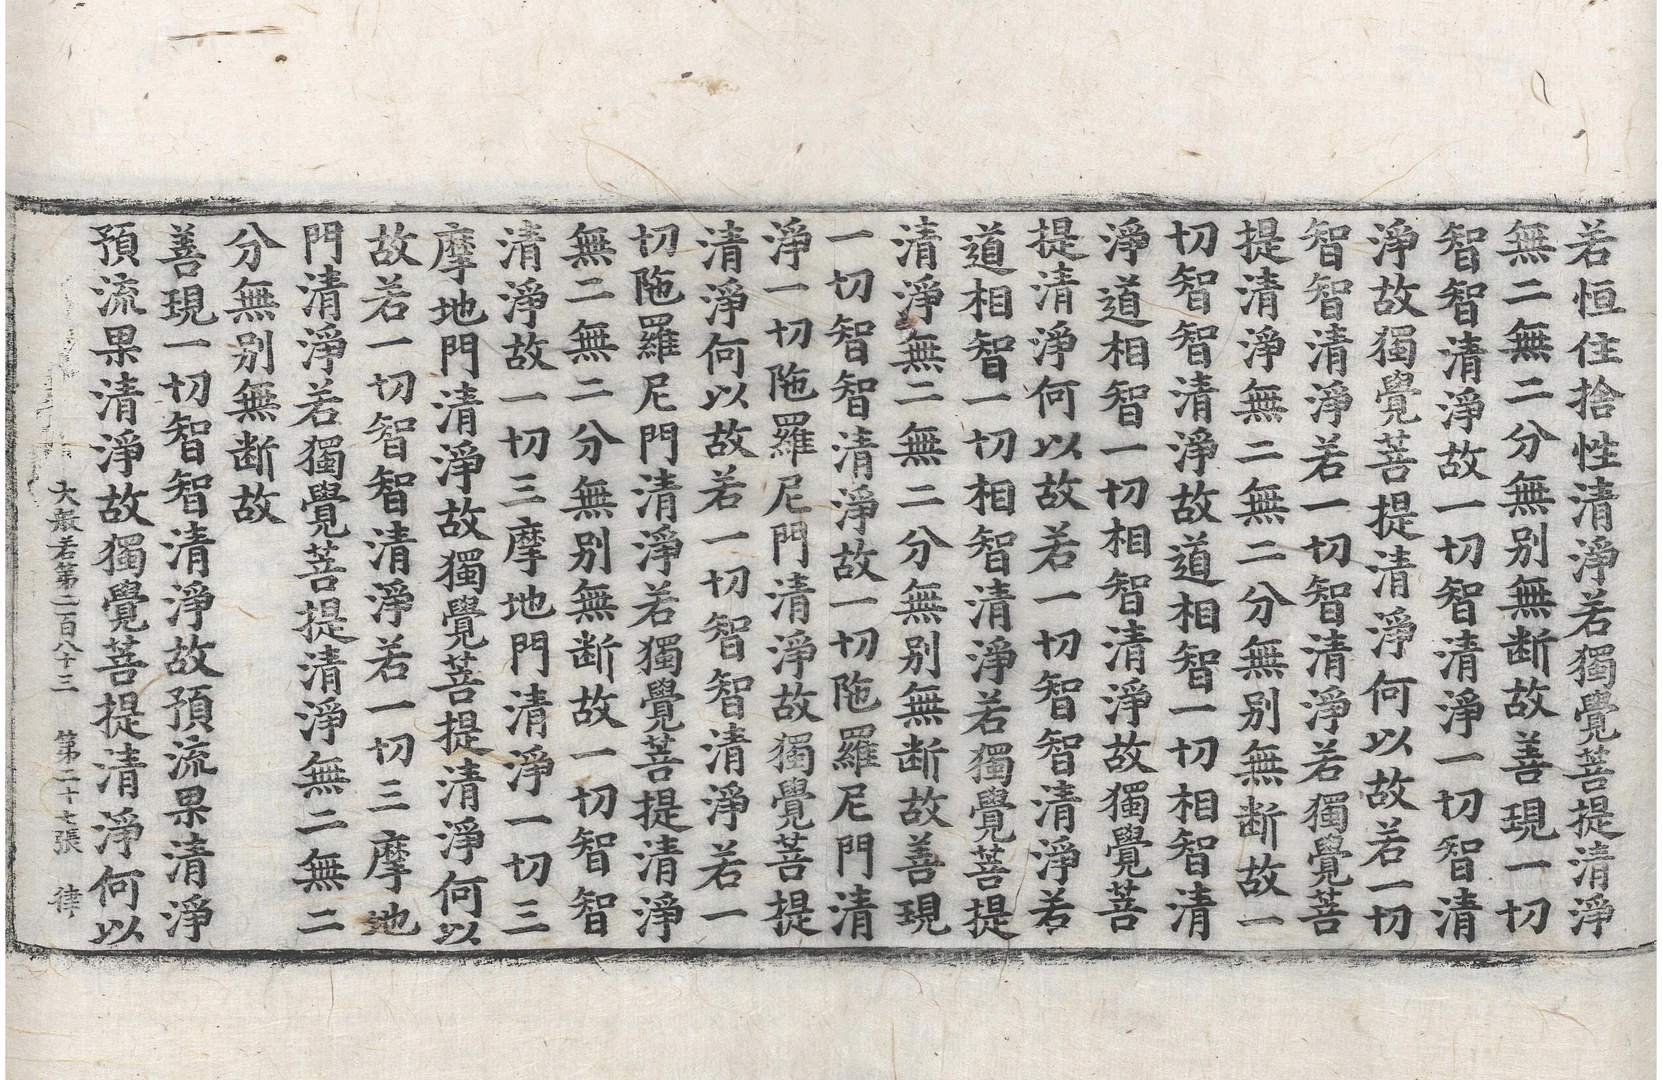 若恒住捨性清淨若獨覺菩提清淨
無二無二分無別無断故善現一切
智智清淨故一切智清淨一切智清
淨故獨覺菩提清淨何以故若一切
智智清淨若一切智清淨若獨覺菩
提清淨無二無二分無別無断故一
切智智清淨故道相智一切相智清
淨道相智一切相智清淨故獨覺菩
提清淨何以故若一切智智清淨若
道相智一切相智清淨若獨覺菩提
清淨無二無二分無別無断故善現
一切智智清淨故一切陁羅尼門清
淨一切陁羅尼門清淨故獨覺菩提
清淨何以故若一切智智清淨若一
切陁羅尼門清淨若獨覺菩提清淨
無二無二分無別無断故一切智智
清淨故一切三摩地門清淨一切三
摩地門清淨故獨覺菩提清淨何以
故若一切智智清淨若一切三摩地
門清淨若獨覺菩提清淨無二無二
分無別無断故
善現一切智智清淨故預流果清淨
預流果清淨故獨覺菩提清淨何以
大般若第二百八十三 第二十七張 律